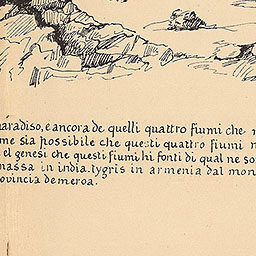 paradiso, e ancora de quelli quattro fiumi che
me sia possibile che questi quattro fiumi
el genesi che questi fiumi hi fonti di qual ne so
massa in india. tygris in armenia dal mon
rovincia de meroa.